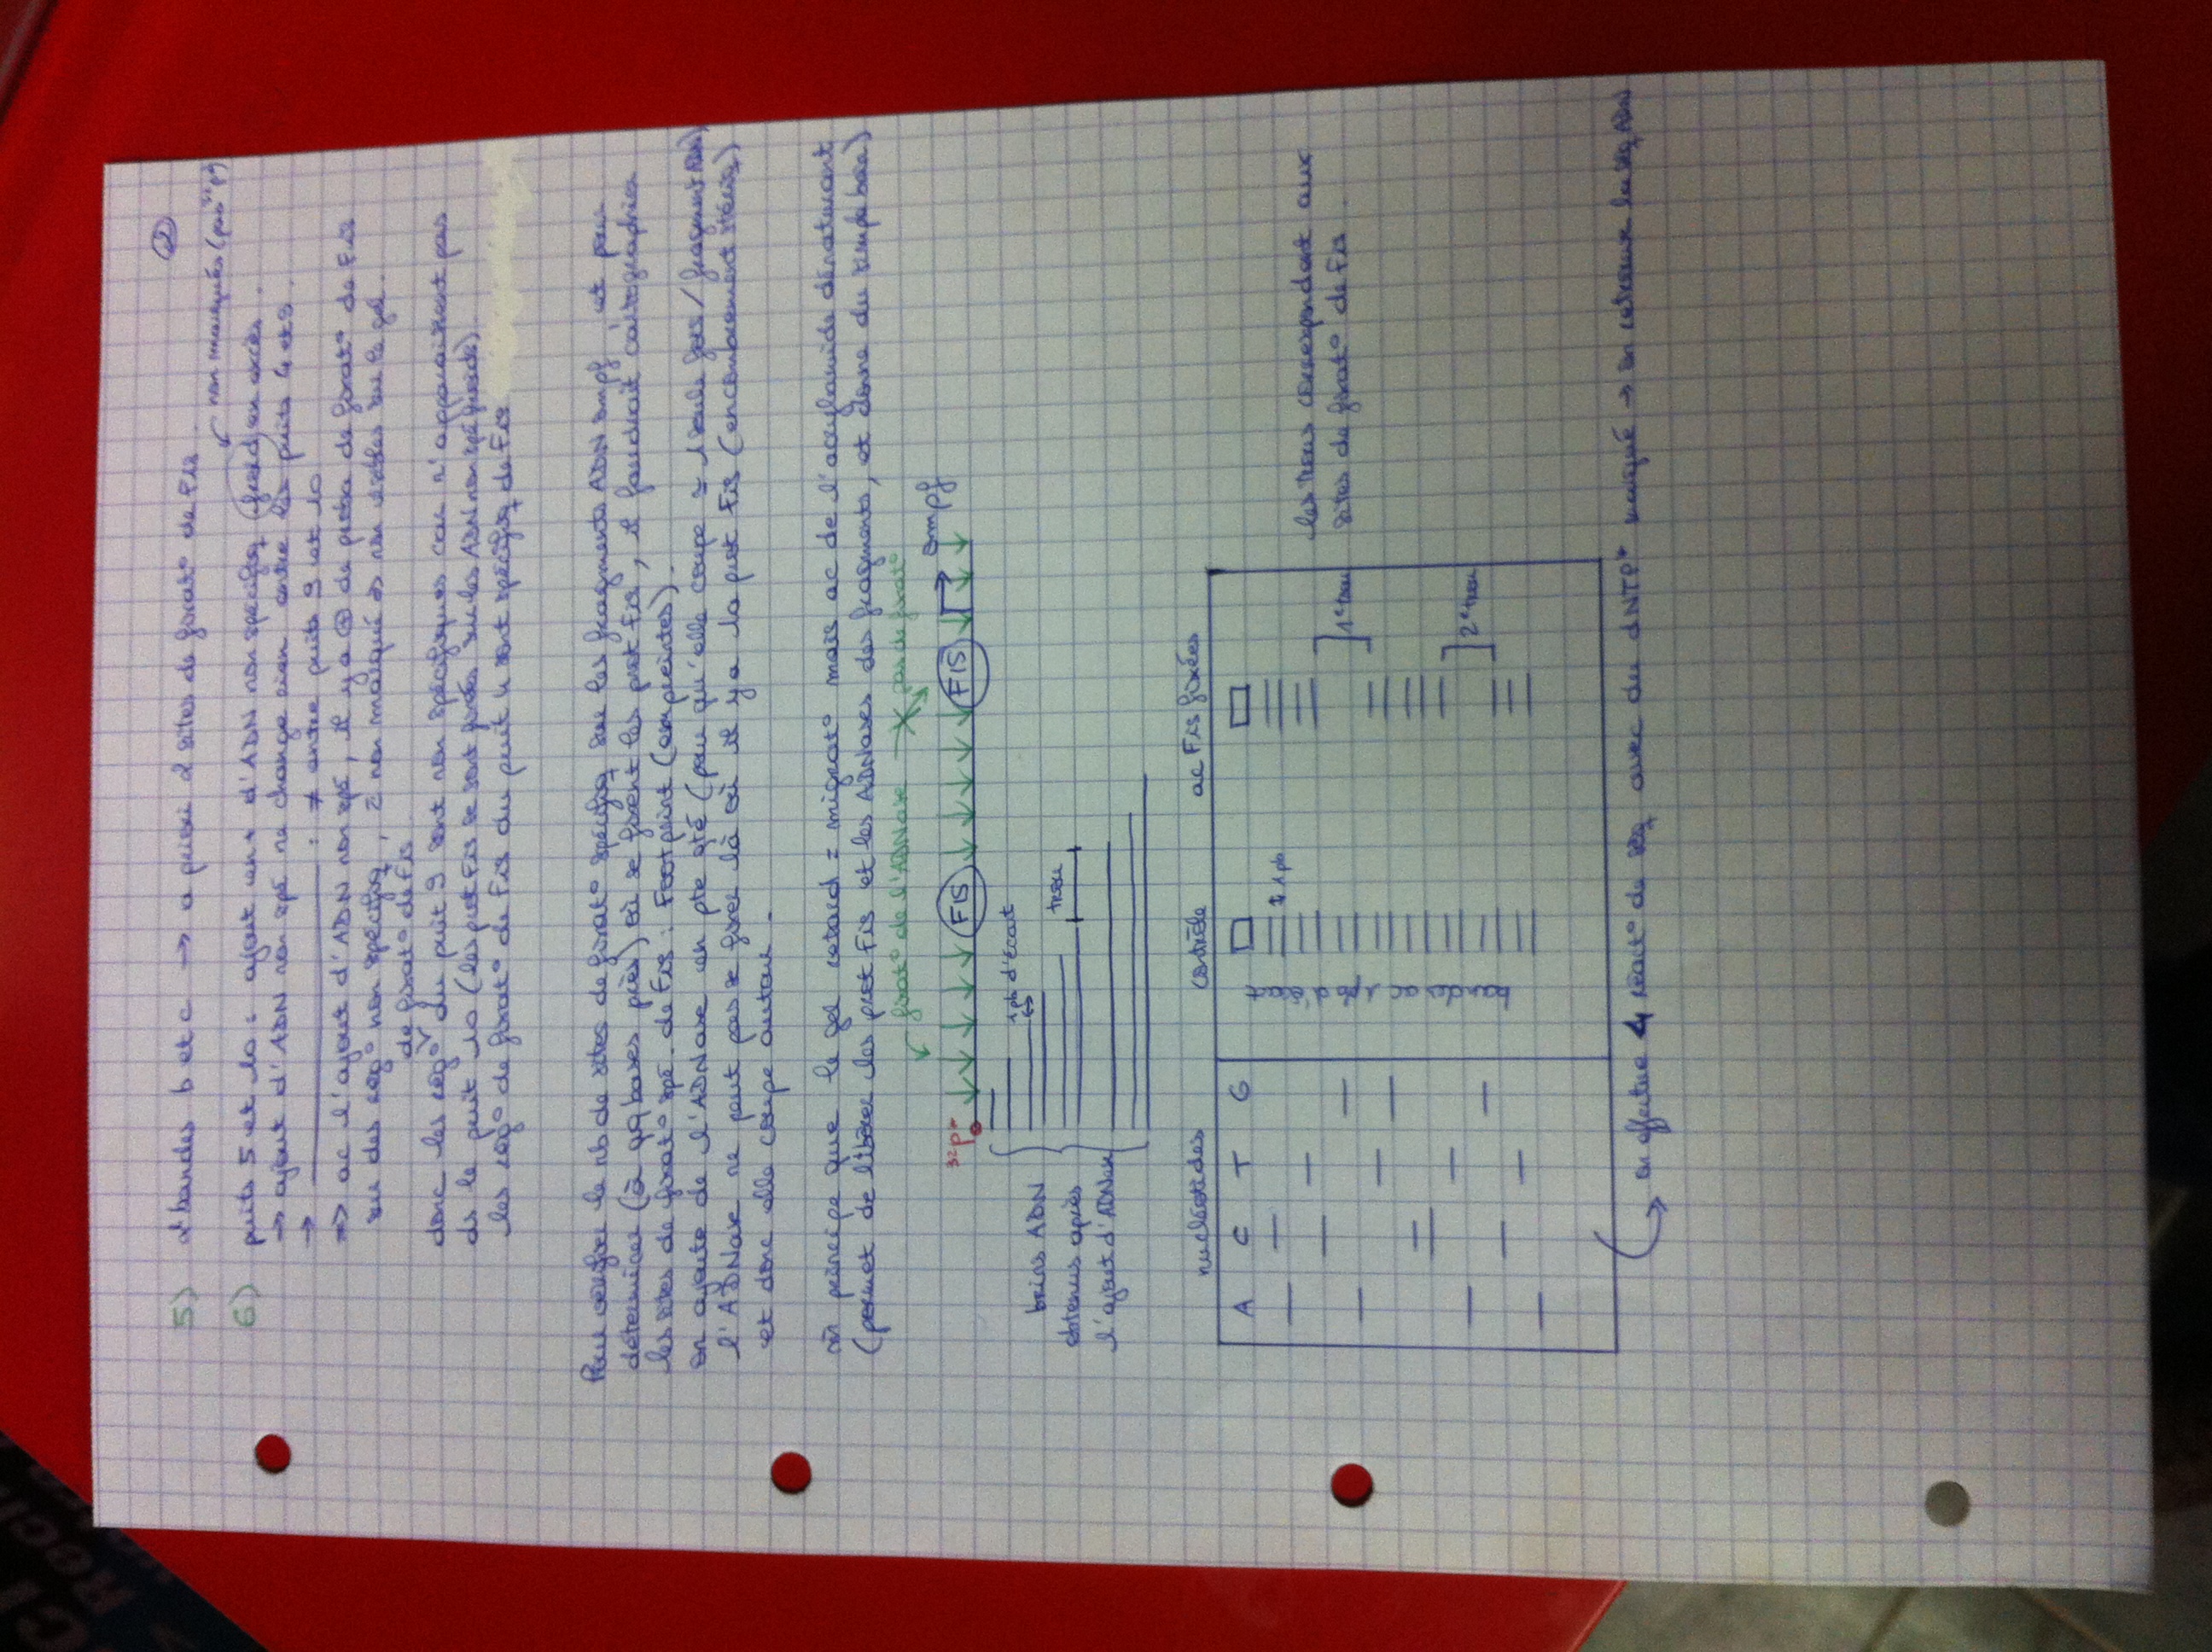 2
5) 2 bandes b et c → a priori 2 sites de fixat° de Fis.
non marquées (pas ³²P)
6) puits 5 et 10 : ajout en + d'ADN non spécifiq (froid) en excès.
→ ajout d'ADN non spé ne change rien entre les puits 4 et 5.
→ ____________ : ≠ entre puits 9 et 10
=> ac l'ajout d'ADN non spé, il y a ⊕ de proba de fixat° de Fis
sur des rég° non spécifiq, = non marqué => non visibles sur le gel.
de fixat° de Fis
donc les rég° du puit 9 sont non spécifiques car n'apparaissent pas
ds le puit 10 (les prot Fis se sont fixées sur les ADN non spé froids)
les rég° de fixat° de Fis du puit 4 sont spécifiq de Fis
Pour vérifier le nb de sites de fixat° spécifiq sur les fragments ADN ompf, et pour
déterminer (à qq bases près) où se fixent les prot Fis, il faudrait cartographier
les sites de fixat° spé. de Fis : Footprint (empreintes).
on ajoute de l'ADNase en pte qté (pour qu'elle coupe ≈ 1 seule fois / fragment ADN)
l'ADNase ne peut pas se fixer là où il y a la prot Fis (encombrement stériq)
et donc elle coupe autour.
m̂ principe que le gel retard = migrat° mais ac de l'acrylamide dénaturant
(permet de libérer les prot Fis et les ADNases des fragments, et donne du simple brin)
fixat° de l'ADNase pas de fixat°
³²P FIS FIS ompf
1 pb d'écart
brins ADN
trou
obtenus après
l'ajout d'ADNase
nucléotides contrôle ac Fis fixées
A C T G
bandes ac 1 pb d'écart
1 pb
les trous correspondent aux
1er trou sites de fixat° de Fis.
2e trou
on effectue 4 réact° de séq avec du dNTP* marqué → on retrouve la séq ADN